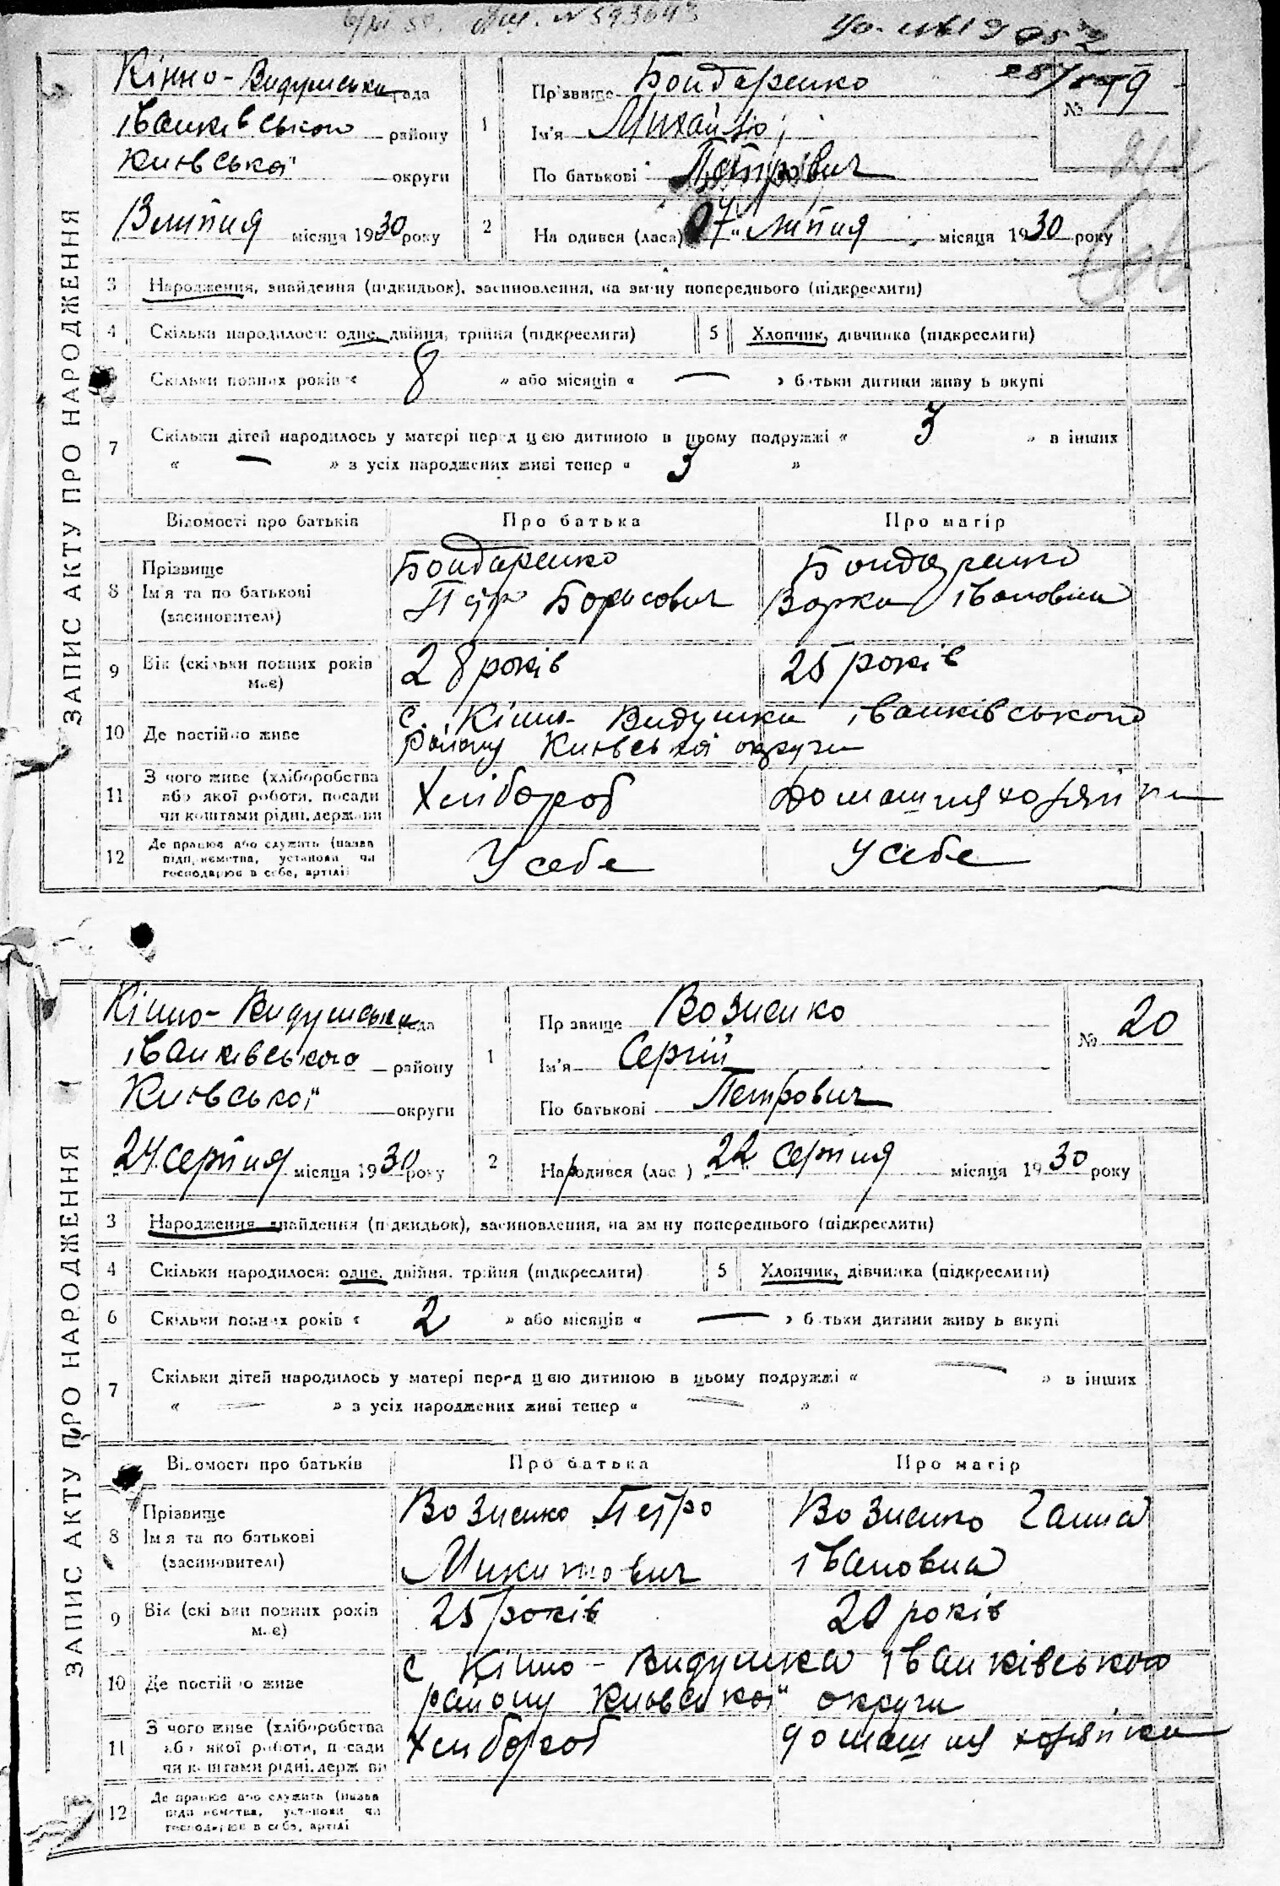 ЗАПИС АКТУ ПРО НАРОДЖЕННЯ
Кінно-Видумська рада
іванківського району
Київської округи
13 липня місяця 1930 року
№ 19
1 Прізвище Бондаренко
Ім'я Михайло
По батькові Петрович
2 На одився (лася) 07 липня місяця 1930 року
3 Народження, знайдення (підкидьок), засиновлення, на зміну попереднього (підкреслити)
4 Скільки народилося: одне, двійня, трійня (підкреслити) 5 Хлопчик, дівчинка (підкреслити)
Скільки повних років « 8 » або місяців « — » батьки дитини живуть вкупі
7 Скільки дітей народилось у матері перед цією дитиною в цьому подружжі « 3 » в інших
« — » з усіх народжених живі тепер « 3 »
Відомості про батьків Про батька Про матір
8 Прізвище Ім'я та по батькові (засиновителі)
Бондаренко Петро Борисович
Бондаренко Варка івановна
9 Вік (скільки повних років має) 28 років 25 років
10 Де постійно живе с. Кінно-Видумка іванківського
району Київської округи
11 З чого живе (хліборобства
або якої роботи, посади
чи коштами рідні, держави
Хлібороб Домашня хозяйка
12 Де працює або служить (назва
підприємства, установи чи
господарює в себе, артілі)
У себе У себе
ЗАПИС АКТУ ПРО НАРОДЖЕННЯ
Кінно-Видумська рада
іванківського району
Київської округи
24 серпня місяця 1930 року
№ 20
1 Прізвище Возненко
Ім'я Сергій
По батькові Петрович
2 Народився (лас ) 22 серпня місяця 1930 року
3 Народження, знайдення (підкидьок), засиновлення, на зміну попереднього (підкреслити)
4 Скільки народилося: одне, двійня, трійня (підкреслити) 5 Хлопчик, дівчинка (підкреслити)
6 Скільки повних років « 2 » або місяців « — » батьки дитини живуть вкупі
7 Скільки дітей народилось у матері перед цією дитиною в цьому подружжі « — » в інших
« — » з усіх народжених живі тепер « — »
Відомості про батьків Про батька Про матір
8 Прізвище Ім'я та по батькові (засиновителі)
Возненко Петро Микитович
Возненко Ганна івановна
9 Вік (скільки повних років має) 25 років 20 років
10 Де постійно живе с Кінно-Видумка іванківського
району Київської округи
11 З чого живе (хліборобства
або якої роботи, посади
чи коштами рідні, держави
Хлибороб домашня хозяйка
12 Де працює або служить (назва
підприємства, установи чи
господарює в себе, артілі